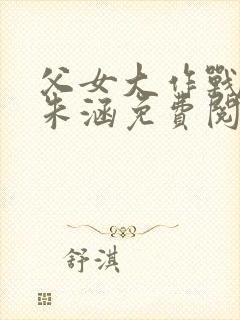 父女大作戰
朱涵免費閱
舒淇